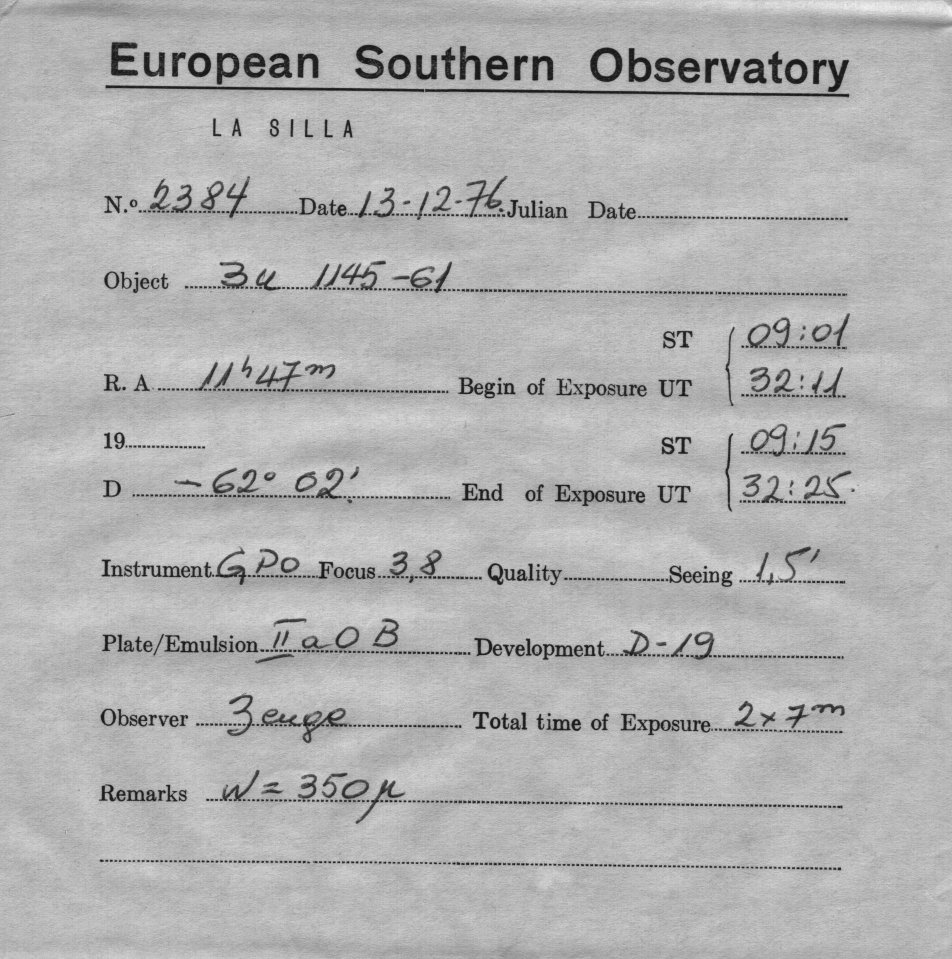 European Southern Observatory
LA SILLA
N.º 2384 Date 13-12-76. Julian Date
Object 3u 1145-61
ST 09:01
R. A 11h 47m Begin of Exposure UT 32:11
19 ST 09:15
D -62° 02' End of Exposure UT 32:25
Instrument GPO Focus 3,8 Quality Seeing 1,5'
Plate/Emulsion II a O B Development D-19
Observer Zeuge Total time of Exposure 2x7m
Remarks W = 350 μ